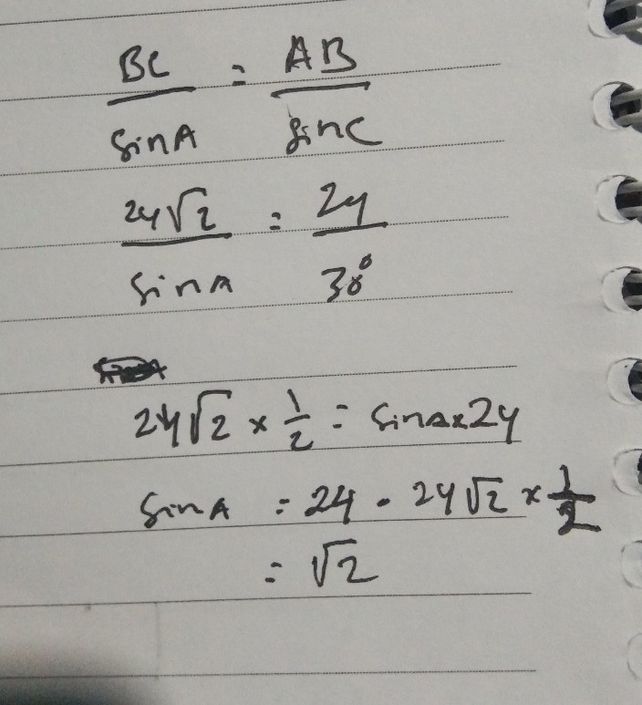 BC/SinA = AB/SinC
24√2/SinA = 24/30°
24√2 × 1/2 = SinA × 24
SinA = 24 - 24√2 × 1/2
= √2